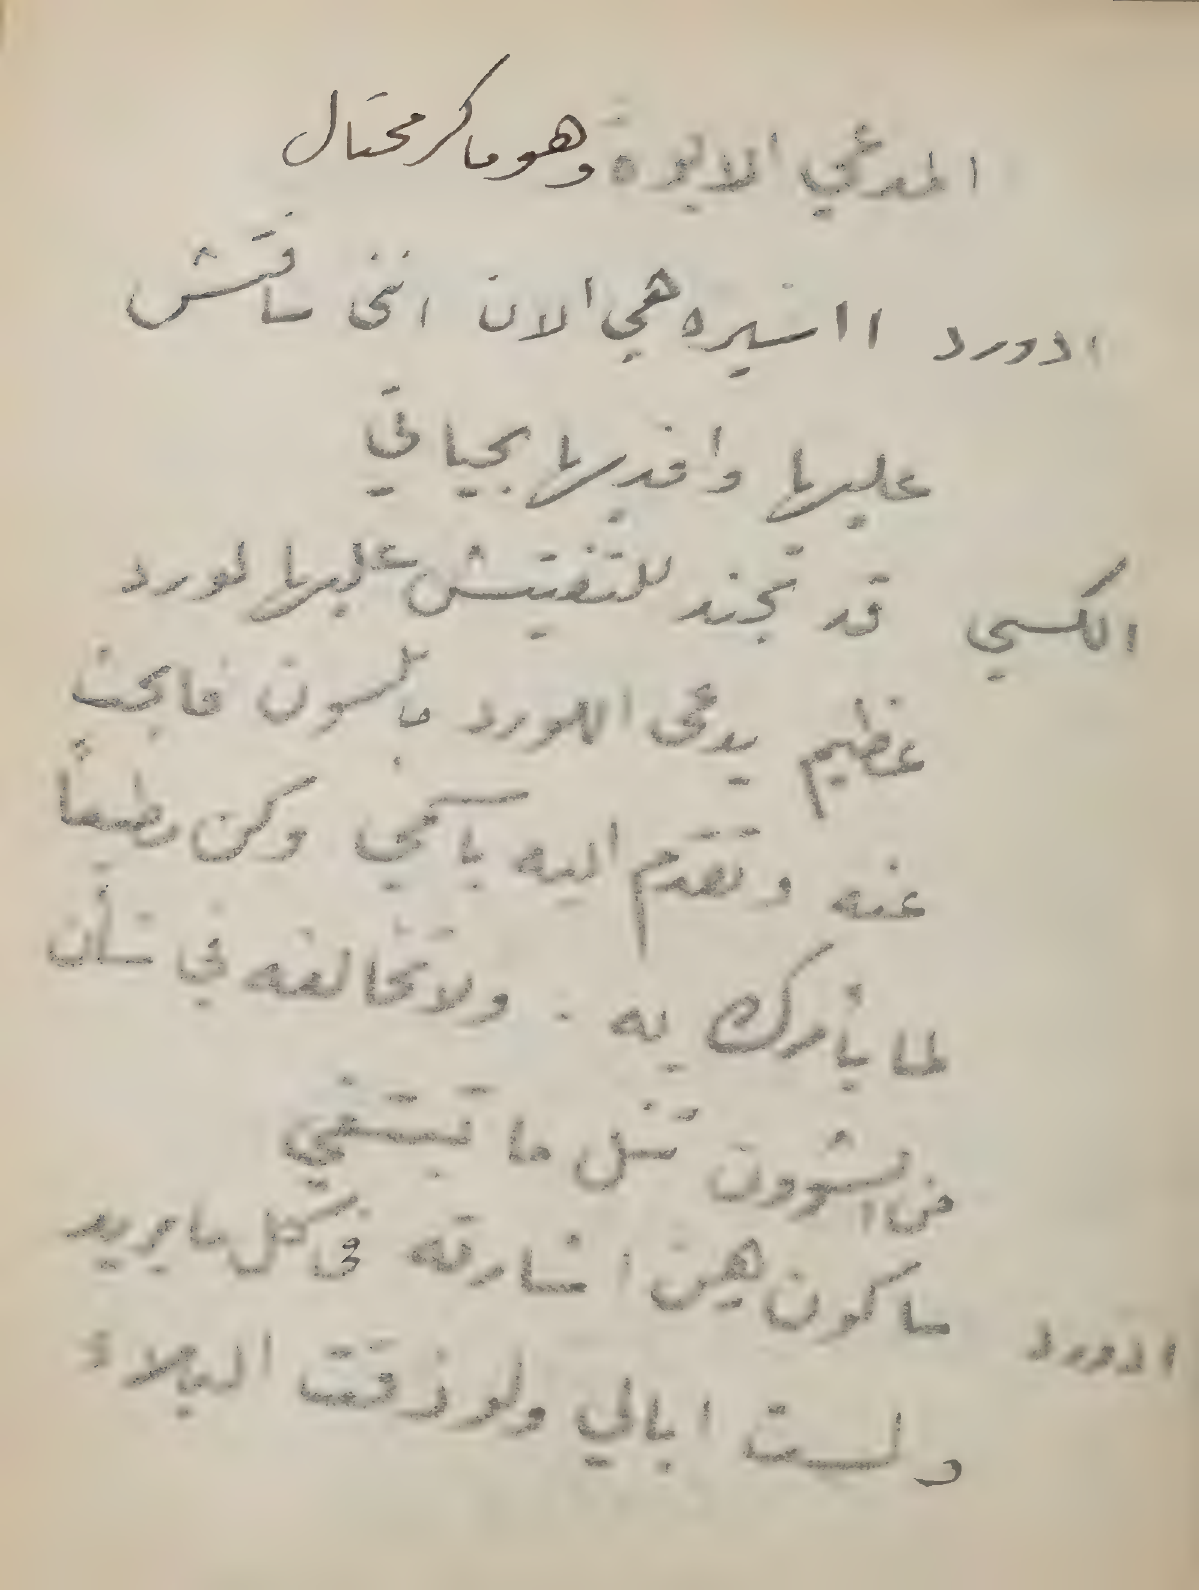 المدعي الابوة وهو ماكر محتال
ادورد ااسيره هي الان انني سافتش
عليها وافديها بحياتي
الكسي قد تجند للتفتيش عليها لورد
عظيم يدعى اللورد جلسون فابحث
عنه وتقدم اليه باسمي وكن مطيعاً
لما يأمرك به . ولا تخالفه في شأن
من الشوون تنل ما تبتغي
ادورد ساكون رهن اشارته في كل ما يريد
ولست ابالي ولو ذقت البلاء